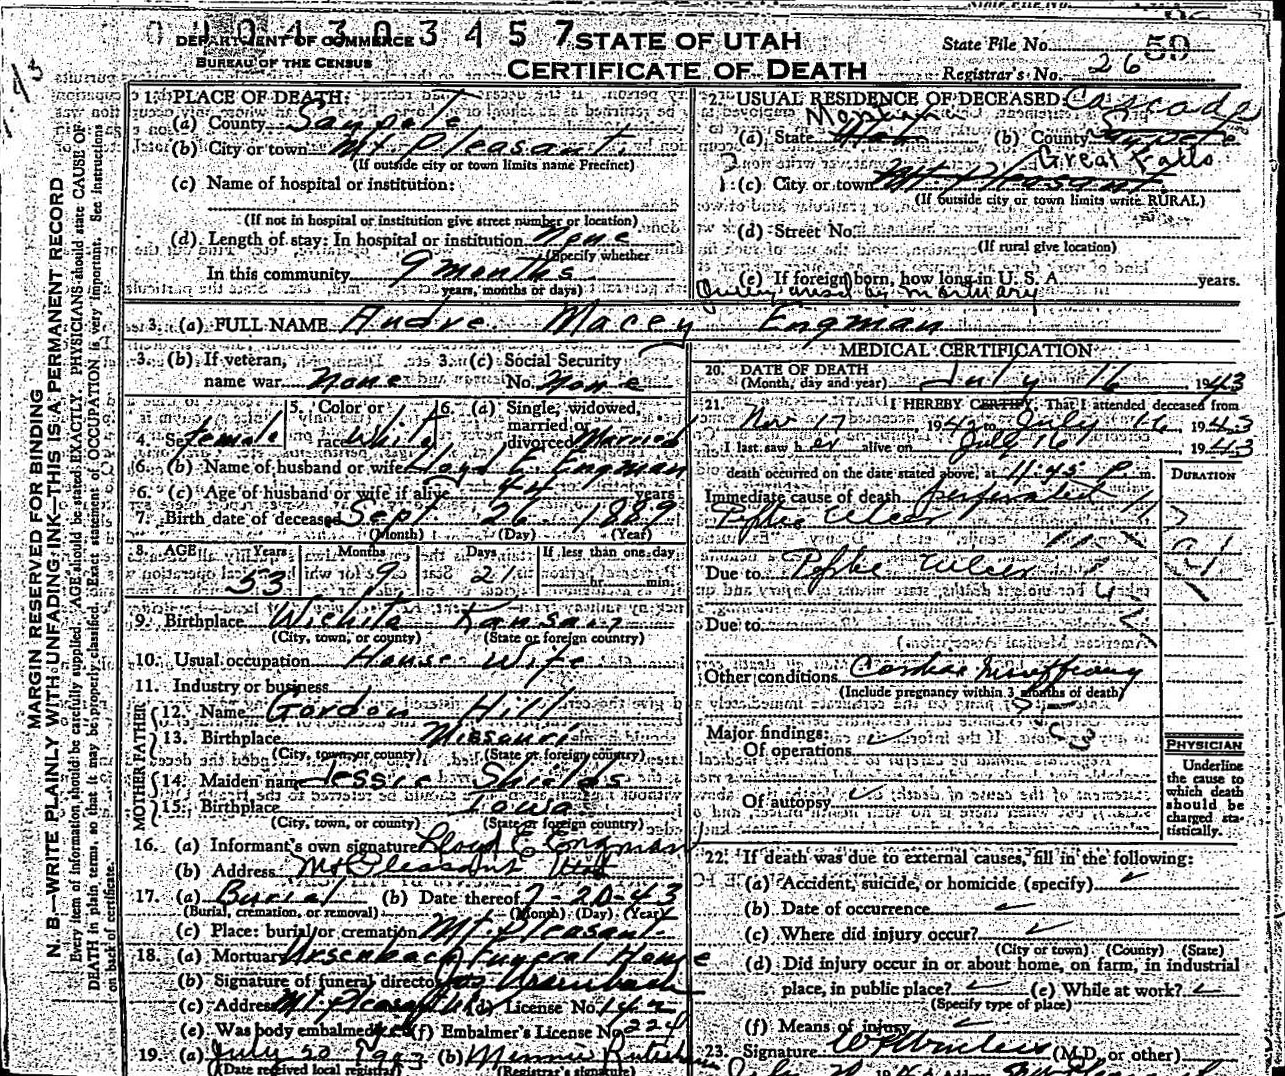 0 4 3 0 3 4 5 7
DEPARTMENT OF COMMERCE
BUREAU OF THE CENSUS
STATE OF UTAH
CERTIFICATE OF DEATH
State File No. 50
Registrar's No. 26
MARGIN RESERVED FOR BINDING
N. B.—WRITE PLAINLY WITH UNFADING INK—THIS IS A PERMANENT RECORD
Every item of information should be carefully supplied. AGE should be stated EXACTLY. PHYSICIANS should state CAUSE OF
DEATH in plain terms, so that it may be properly classified. Exact statement of OCCUPATION is very important. See instructions
on back of certificate.
1. PLACE OF DEATH:
(a) County Sanpete
(b) City or town Mt Pleasant
(If outside city or town limits name Precinct)
(c) Name of hospital or institution:
(If not in hospital or institution give street number or location)
(d) Length of stay: In hospital or institution none
(Specify whether
In this community 9 months
years, months or days)
2. USUAL RESIDENCE OF DECEASED: Cascade
(a) State Utah (b) County Sanpete
Great Falls
(c) City or town Mt. Pleasant
(If outside city or town limits write RURAL)
(d) Street No.
(If rural give location)
(e) If foreign born, how long in U. S. A. years.
by mortuary
3. (a) FULL NAME Andre Macey Engman
3. (b) If veteran, name war None
3. (c) Social Security No. None
4. Sex female
5. Color or race White
6. (a) Single, widowed, married or divorced Married
6. (b) Name of husband or wife Lloyd E. Engman
6. (c) Age of husband or wife if alive 44 years
7. Birth date of deceased Sept. 26 1889
(Month) (Day) (Year)
8. AGE Years Months Days If less than one day
53 9 21 hr. min.
9. Birthplace Wichita Kansas
(City, town, or county) (State or foreign country)
10. Usual occupation House Wife
11. Industry or business
FATHER
12. Name Gordon Hill
13. Birthplace Missouri
(City, town, or county) (State or foreign country)
MOTHER
14. Maiden name Jessie Shields
15. Birthplace Iowa
(City, town, or county) (State or foreign country)
16. (a) Informant's own signature Lloyd E Engman
(b) Address Mt Pleasant Utah
17. (a) Burial (b) Date thereof 7-20-43
(Burial, cremation, or removal) (Month) (Day) (Year)
(c) Place: burial or cremation Mt. Pleasant
18. (a) Mortuary Ursenbach Funeral Home
(b) Signature of funeral director Ursenbach
(c) Address Mt Pleasant Ut (d) License No. 142
(e) Was body embalmed yes (f) Embalmer's License No. 224
19. (a) July 20 1943 (b) Minnie
(Date received local registrar) (Registrar's signature)
MEDICAL CERTIFICATION
20. DATE OF DEATH
(Month, day and year) July 16 1943
21. I HEREBY CERTIFY, That I attended deceased from
Nov 17 1942 to July 16 1943
I last saw her alive on July 16 1943
death occurred on the date stated above, at 11:45 P. m.
DURATION
Immediate cause of death perforated
Peptic Ulcer
Due to Peptic Ulcer
Due to
Other conditions Cardiac Insufficiency
(Include pregnancy within 3 months of death)
Major findings:
Of operations
Of autopsy
PHYSICIAN
Underline
the cause to
which death
should be
charged sta-
tistically.
22. If death was due to external causes, fill in the following:
(a) Accident, suicide, or homicide (specify)
(b) Date of occurrence
(c) Where did injury occur?
(City or town) (County) (State)
(d) Did injury occur in or about home, on farm, in industrial
place, in public place? (e) While at work?
(Specify type of place)
(f) Means of injury
23. Signature (M.D. or other)